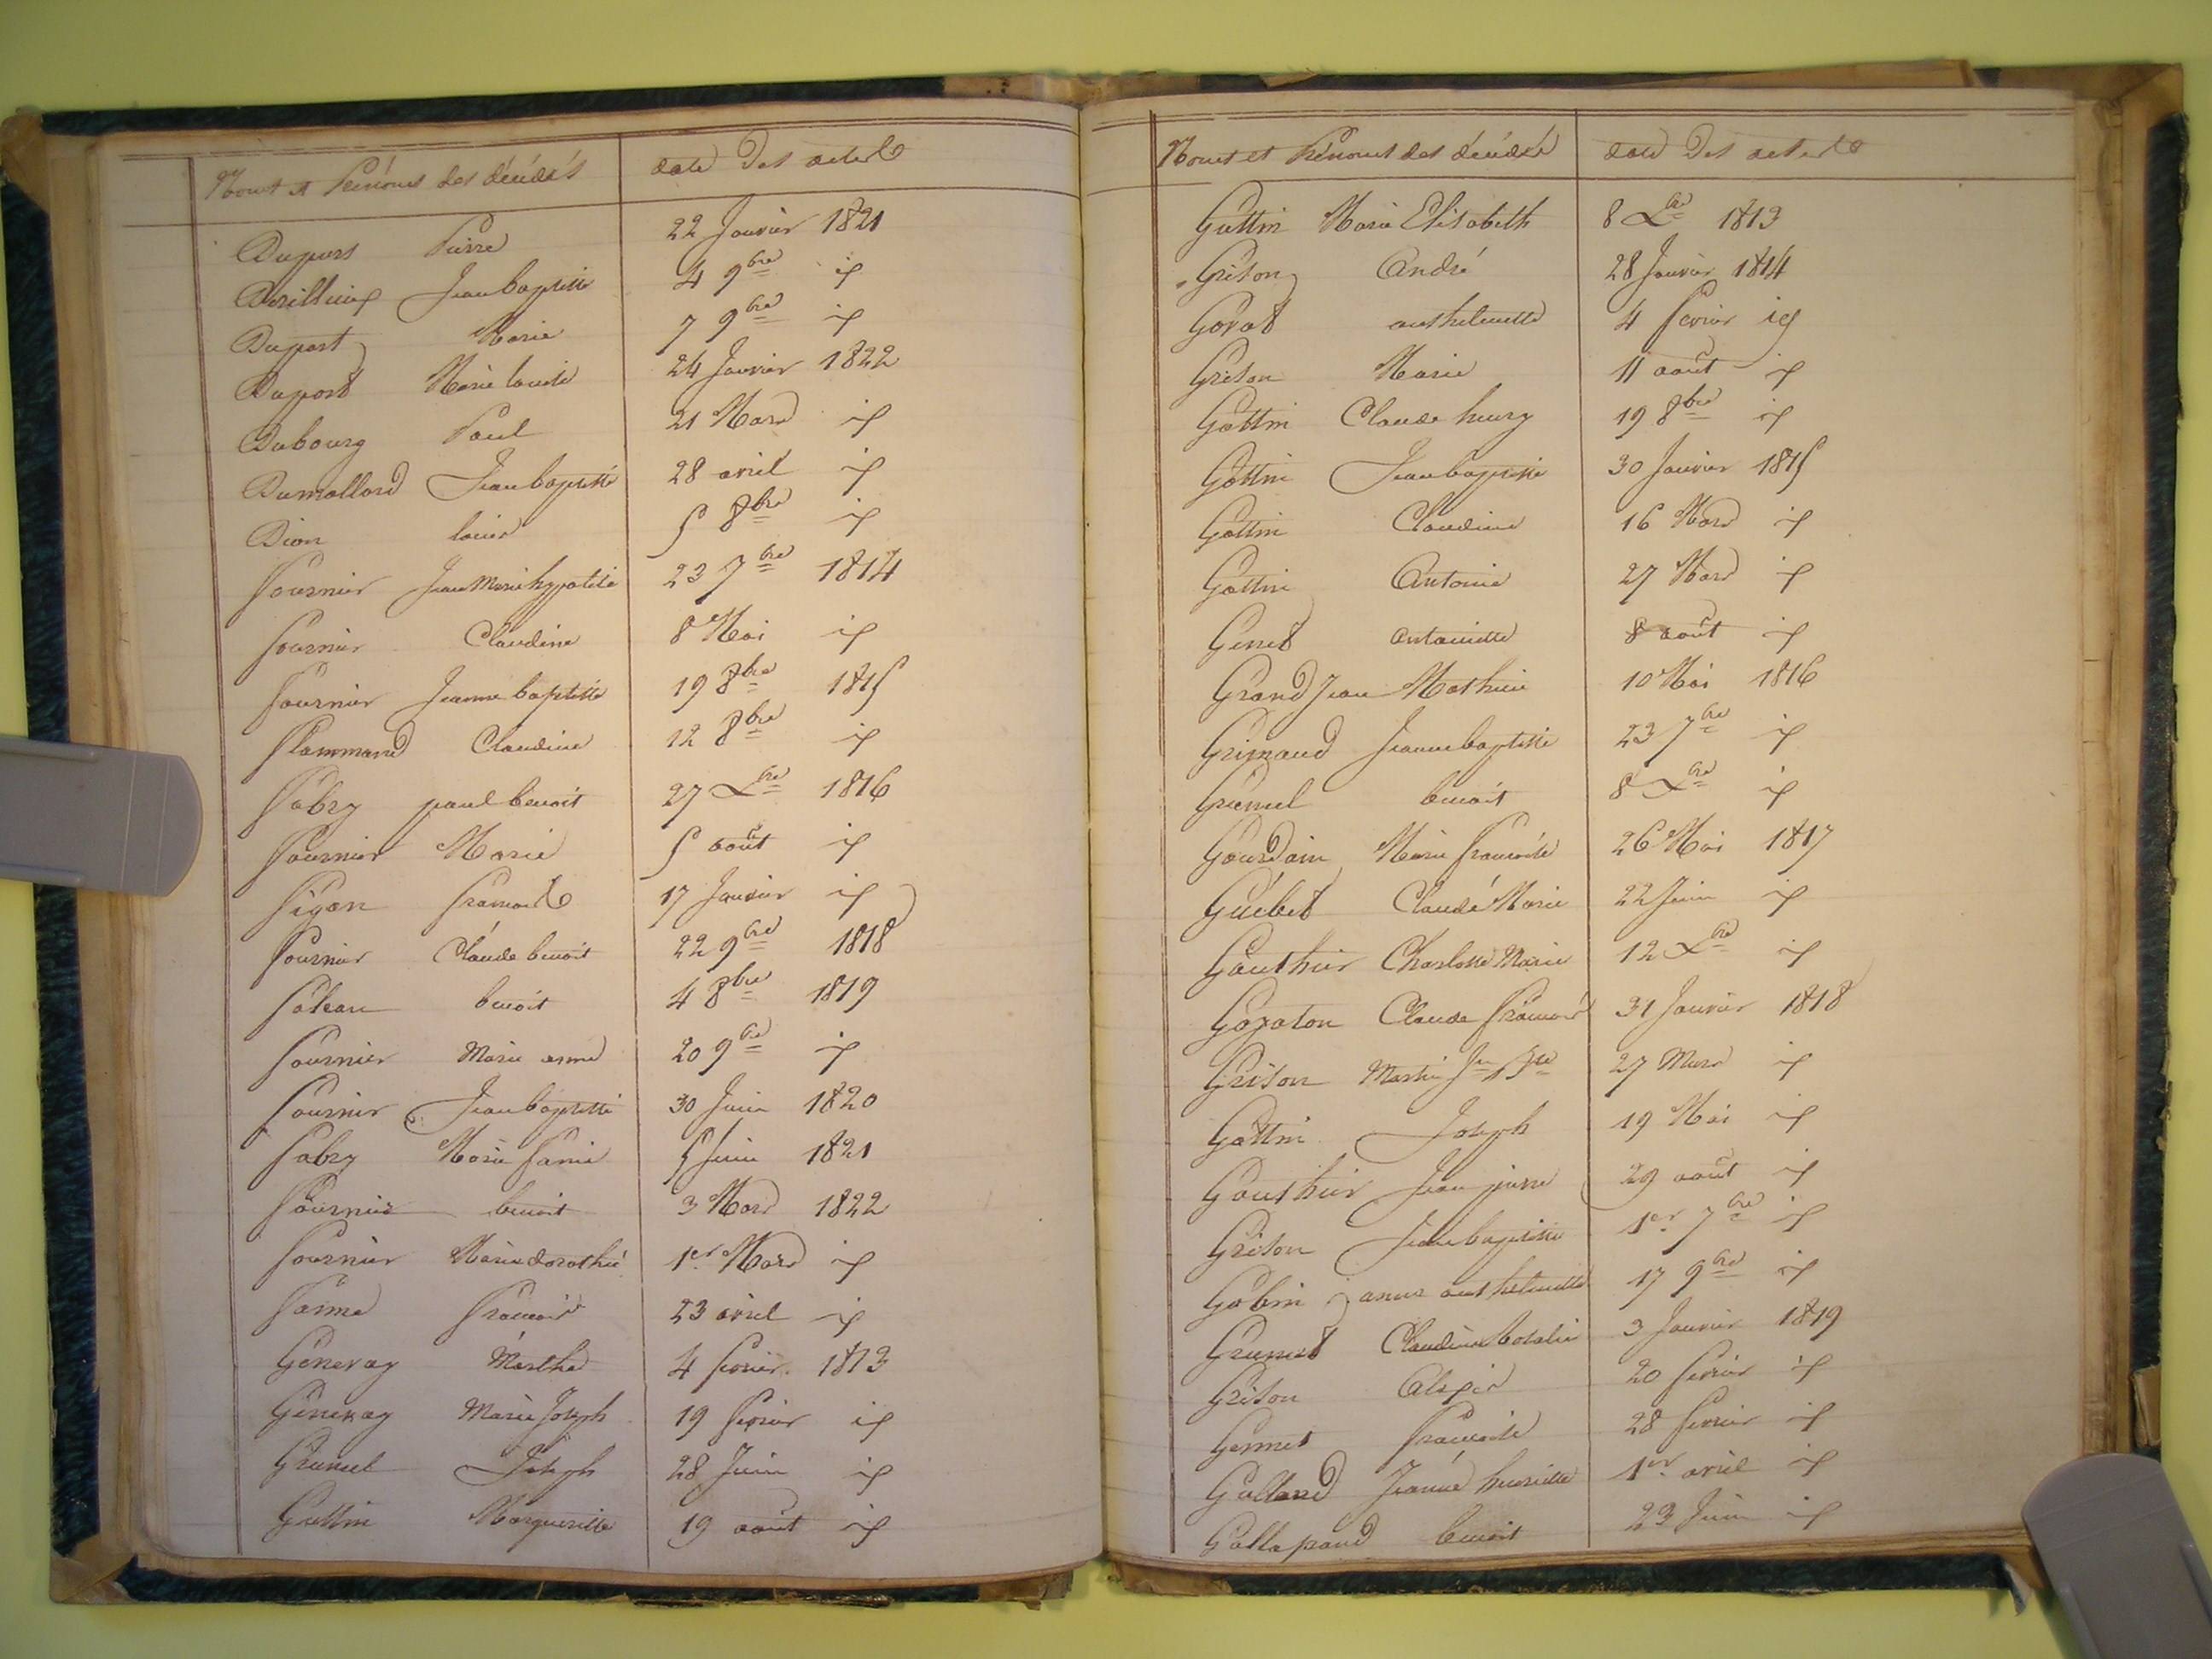 Noms et Prénoms des décédés date des actes
Dupors Pierre 22 Janvier 1821
Jean baptiste 4 9bre id
Duport Marie 7 9bre id
Duport Marie louise 24 Janvier 1822
Dubourg Paul 21 Mars id
Dumollard Jean baptiste 28 avril id
Dion louis 5 8bre id
Fournier Jean Marie hypolite 23 7bre 1814
fournier Claudine 8 Mai id
Fournier Jeanne baptiste 19 8bre 1815
Flammand Claudine 12 8bre id
Fabry paul benoit 27 Xbre 1816
Fournier Marie 5 août id
Figon francois 17 Janvier id
Fournier Claude benoit 22 9bre 1818
benoit 4 8bre 1819
Fournier Marie anne 20 9bre id
Fournier Jean baptiste 30 Juin 1820
Fabry Marie 5 Juin 1821
Fournier benoit 3 Mars 1822
Fournier Marie dorothée 1er Mars id
francois 23 avril id
Genevay Marthe 4 fevrier 1813
Genevay Marie Joseph 19 fevrier id
Grumel Joseph 28 Juin id
Guttin Margueritte 19 août id
Noms et Prénoms des décédés date des actes
Guttin Marie Elisabeth 8 Xbre 1813
Grison André 28 Janvier 1814
anthelmette 4 fevrier id
Grison Marie 11 août id
Gottin Claude henry 19 8bre id
Gottin Jean baptiste 30 Janvier 1815
Gottin Claudine 16 Mars id
Gottin Antoine 27 Mars id
Genet antoinette 8 août id
Grand Jean Mathieu 10 Mai 1816
Grimaud Jeanne baptiste 23 7bre id
Grumel benoit 8 Xbre id
Gourdain Marie francoise 26 Mai 1817
Guébet Claude Marie 22 Juin id
Gauthier Charlotte Marie 12 Xbre id
Claude francois 31 Janvier 1818
Grison Martin Jn Bte 27 Mars id
Gottin Joseph 19 Mai id
Gauthier Jean pierre 29 août id
Grison Jean baptiste 1er 7bre id
Gobin anne anthelmette 17 9bre id
Claudine 3 Janvier 1819
Grison Alexis 20 fevrier id
Gennet francoise 28 fevrier id
Galland Jeanne henriette 1er avril id
benoit 23 Juin id